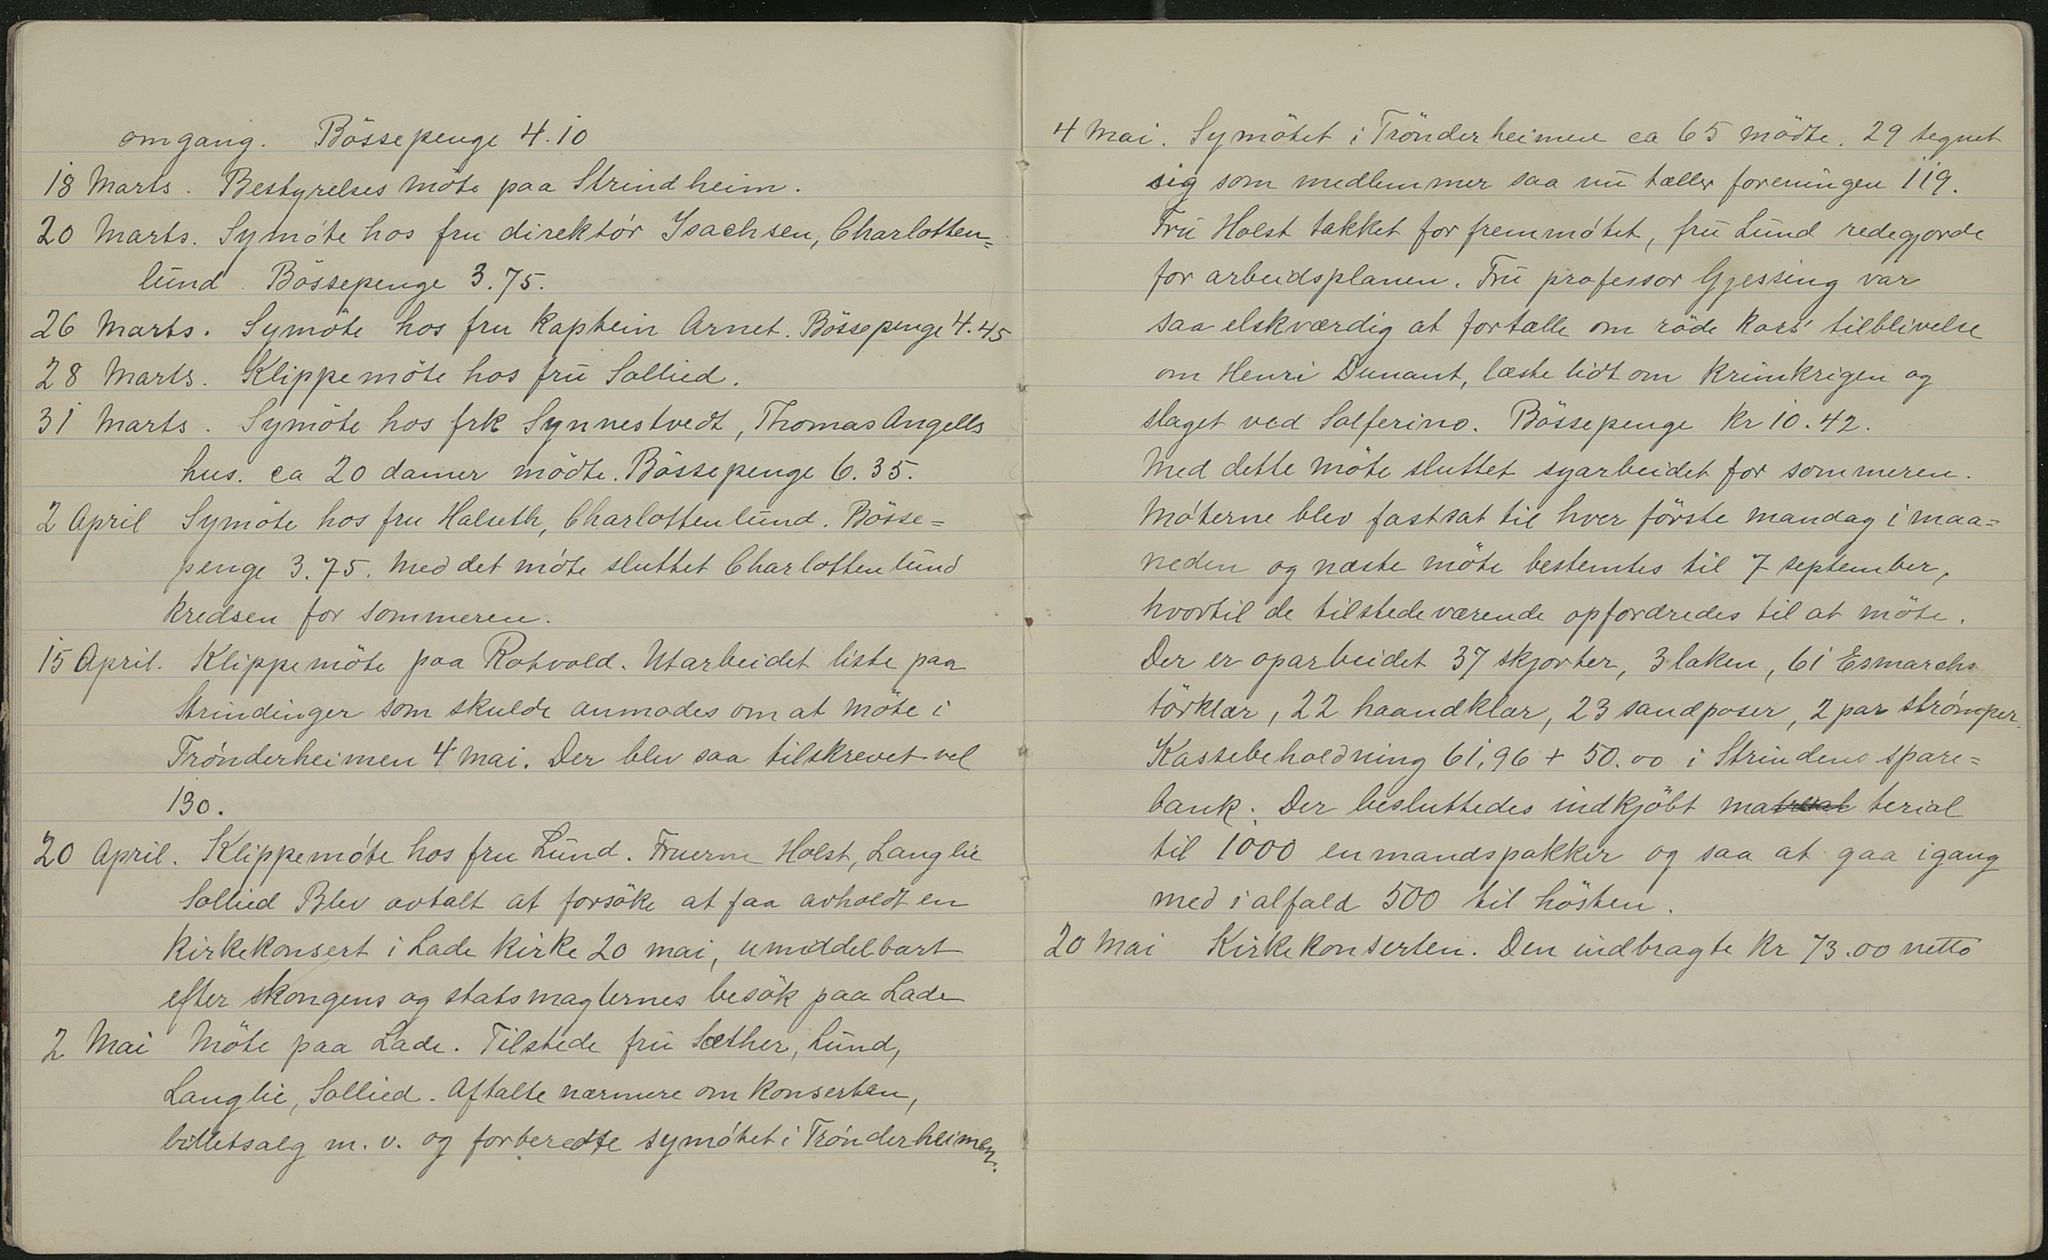 omgang. Bössepenge 4.10
18 Marts. Bestyrelses möte paa Strindheim.
20 Marts. Symöte hos fru direktör Isachsen, Charlotten=
lund. Bössepenge 3.75.
26 Marts. Symöte hos fru kaptein Arnet. Bössepenge 4.45
28 Marts. Klippemöte hos fru Sollied.
31 Marts. Symöte hos frk Synnestvedt, Thomas Angells
hus. ca 20 damer mödte. Bössepenge 6.35.
2 April Symöte hos fru Halseth, Charlottenlund. Bösse=
penge 3.75. Med det möte sluttet Charlottenlund
kredsen for sommeren.
15 April. Klippemöte paa Rotvold. Utarbeidet liste paa
Strindinger som skulde anmodes om at möte i
Trönderheimen 4 mai. Der blev saa tilskrevet vel
130.
20 April. Klippemöte hos fru Lund. Fruerne Holst, Langlie
Sollied Blev avtalt at forsöke at faa avholdt en
kirkekonsert i Lade kirke 20 mai, umiddelbart
efter kongens og statsmagternes besök paa Lade
2 Mai Möte paa Lade. Tilstede fru Sæther, Lund,
Langlie, Sollied. Aftalte nærmere om konserten,
billetsalg m. v. og forberedte symötet i Trönderheimen.
4 Mai. Symötet i Trönderheimen ca 65 mödte. 29 tegnet
sig som medlemmer saa nu tæller foreningen 119.
Fru Holst takket for fremmötet, fru Lund redegjorde
for arbeidsplanen. Fru professor Gjessing var
saa elskværdig at fortælle om röde kors' tilblivelse
om Henri Dunant, læste lidt om krimkrigen og
slaget ved Solferino. Bössepenge kr 10.42.
Med dette möte sluttet syarbeidet for sommeren.
Möterne blev fastsat til hver förste mandag i maa=
neden og næste möte bestemtes til 7 september,
hvortil de tilstedeværende opfordredes til at möte.
Der er oparbeidet 37 skjorter, 3 laken, 61 Esmarchs
törklær, 22 haandklær, 23 sandposer, 2 par strömper.
Kassebeholdning 61,96 + 50.00 i Strindens spare=
bank. Der besluttedes indkjöbt material terial
til 1000 enmandspakker og saa at gaa igang
med ialfald 500 til hösten.
20 Mai Kirkekonserten. Den indbragte kr 73.00 netto